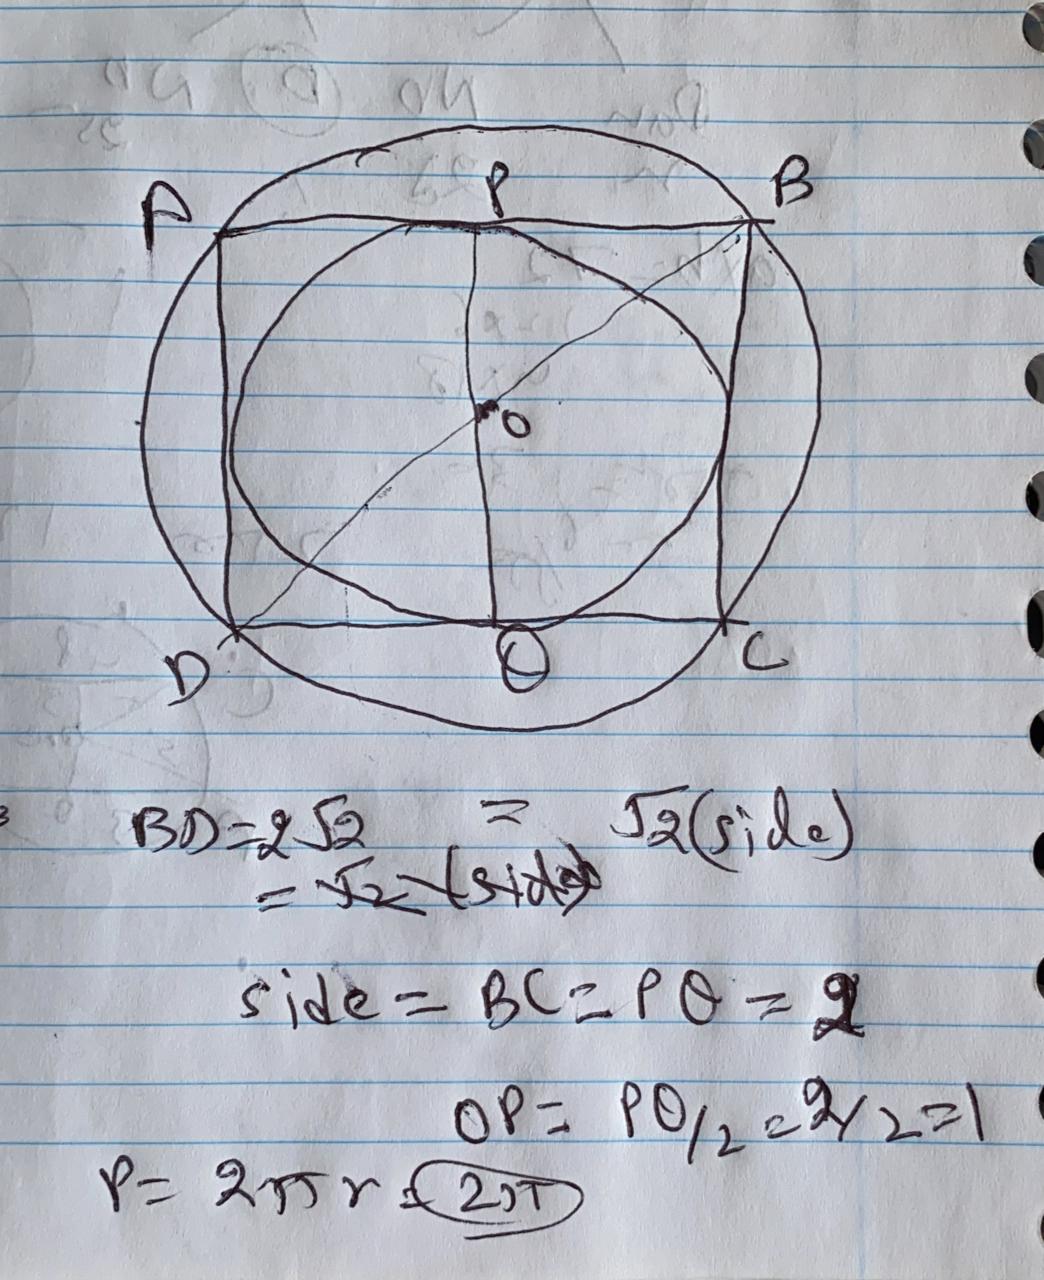 P
A B
O
D Q C
BD=2√2 = √2(side)
= √2 (side)
side = BC = PQ = 2
OP = PQ/2 = 2/2 = 1
P = 2πr = 2π